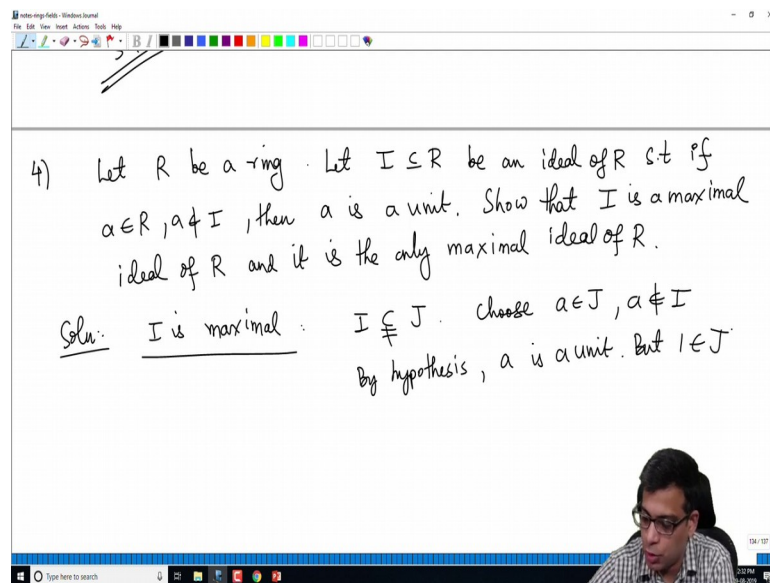 notes-rings-fields - Windows Journal
File Edit View Insert Actions Tools Help
4) Let R be a ring. Let I ⊆ R be an ideal of R s.t if
a ∈ R, a ∉ I, then a is a unit. Show that I is a maximal
ideal of R and it is the only maximal ideal of R.
Soln: I is maximal: I ⊊ J. Choose a ∈ J, a ∉ I
By hypothesis, a is a unit. But 1 ∈ J
134 / 137
Type here to search
2:32 PM